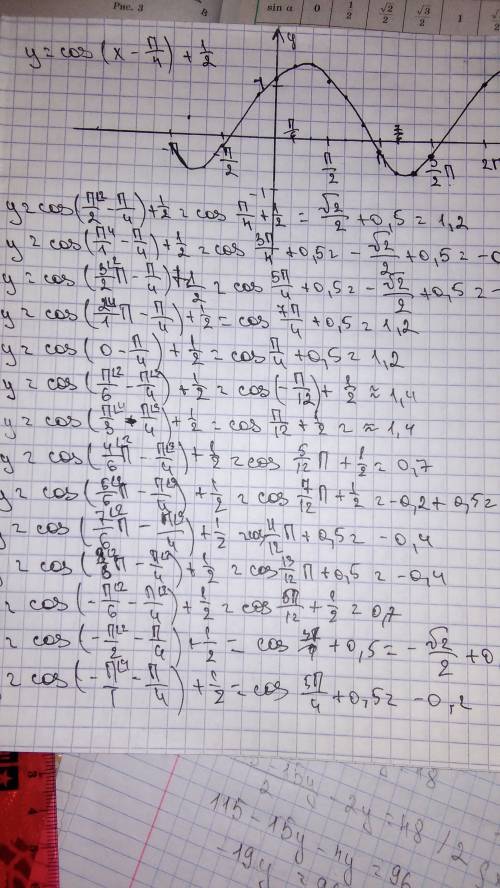 Рис. 3
4
sin α 0 1/2 √2/2 √3/2 1
y = cos (x - π/4) + 1/2
y
1
-π -π/2 π/6 π/2 π 3/2 π 2π
-1
y = cos (π\2/2 - π/4) + 1/2 = cos π/4 + 1/2 = √2/2 + 0,5 = 1,2
y = cos (π\4/1 - π/4) + 1/2 = cos 3π/4 + 0,5 = - √2/2 + 0,5 = -0
y = cos (3\2/2 π - π/4) + 1/2 = cos 5π/4 + 0,5 = - √2/2 + 0,5 = -
y = cos (2\4/1 π - π/4) + 1/2 = cos 7π/4 + 0,5 = 1,2
y = cos (0 - π/4) + 1/2 = cos π/4 + 0,5 = 1,2
y = cos (π\2/6 - π\3/4) + 1/2 = cos (- π/12) + 1/2 ≈ 1,4
y = cos (π\4/3 - π\3/4) + 1/2 = cos π/12 + 1/2 = ≈ 1,4
y = cos (4\2/6 π - π\3/4) + 1/2 = cos 5/12 π + 1/2 = 0,7
y = cos (5\2/6 π - π\3/4) + 1/2 = cos 7/12 π + 1/2 = -0,2 + 0,5 =
= cos (7\2/6 π - π\3/4) + 1/2 = cos 11/12 π + 0,5 = -0,4
= cos ( π - π\3/4) + 1/2 = cos 13/12 π + 0,5 = -0,4
= cos (- π\2/6 - π\3/4) + 1/2 = cos 5π/12 + 1/2 = 0,7
= cos (- π\2/2 - π/4) + 1/2 = cos + 0,5 = - √2/2 + 0
= cos (- π\4/1 - π/4) + 1/2 = cos 5π/4 + 0,5 = -0,2
15y/2 - 2y = 48 / 2
115 - 15y - 4y = 96
-19y = 96